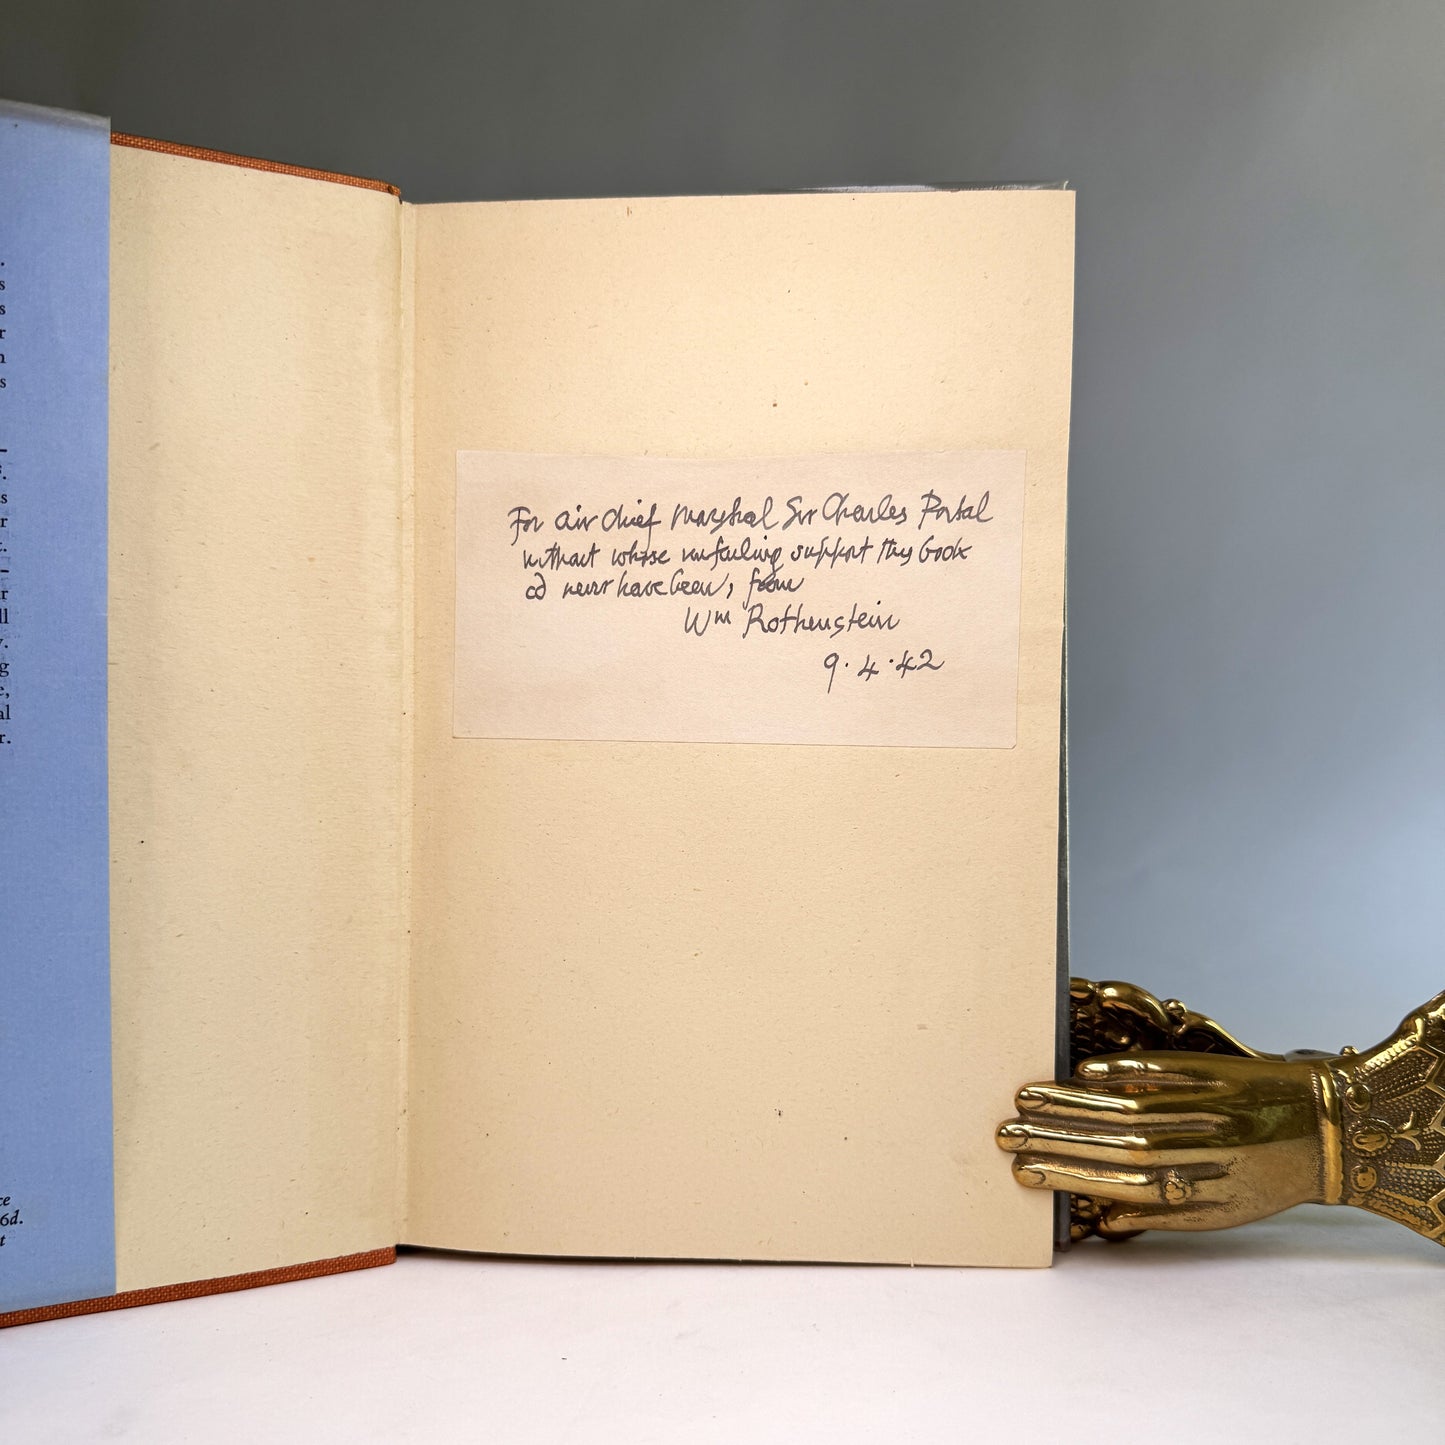 For Air Chief Marshal Sir Charles Portal
without whose unfailing support this book
cd never have been, from
Wm Rothenstein
9.4.42
.
s
s
r
n
s
–
.
s
r
t.
–
r
ll
y.
g
e,
al
r.
ce
6d.
t